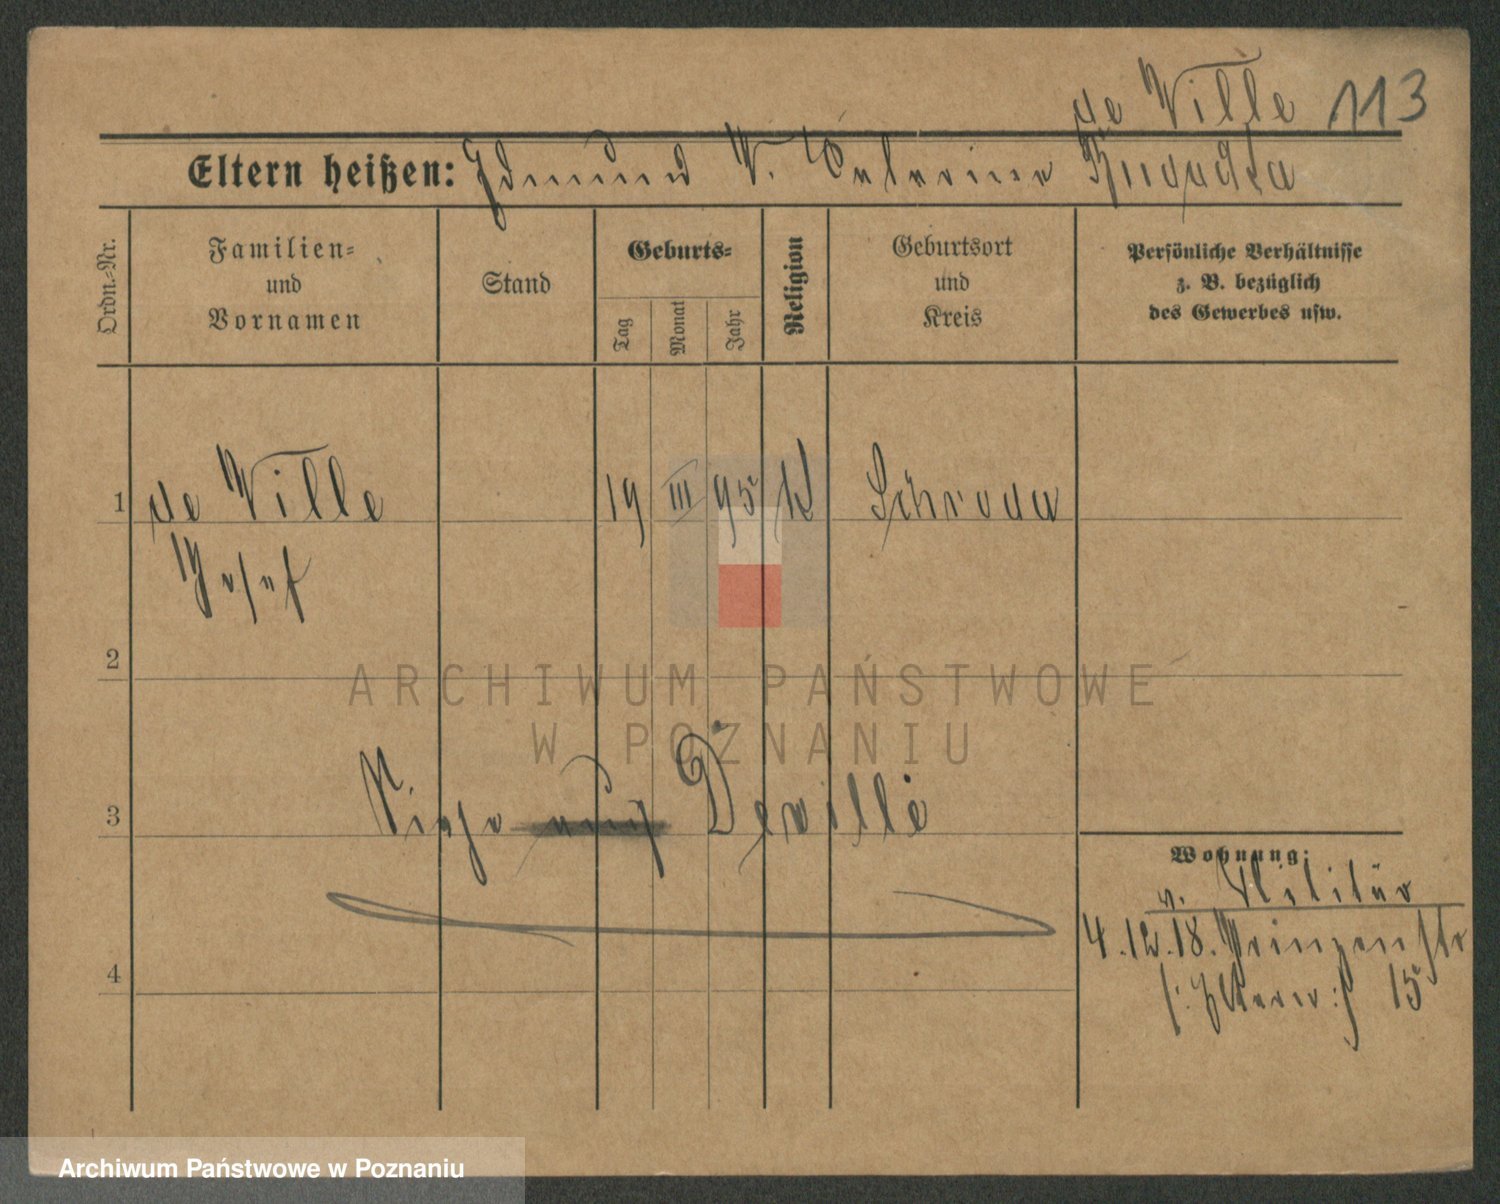 de Ville 113
Eltern heißen: Edmund V. Valerine
Ordn.-Nr.
Familien-
und
Vornamen
Stand
Geburts-
Tag
Monat
Jahr
Religion
Geburtsort
und
Kreis
Persönliche Verhältnisse
z. B. bezüglich
des Gewerbes usw.
1 de Ville 19 III 95 K Schroda
Josef
2
ARCHIWUM PAŃSTWOWE
W POZNANIU
3 Siehe auch Deville
Wohnung:
v. Militär
4.12.18. Prinzenstr
/: Eltern :/ 15
4
Archiwum Państwowe w Poznaniu